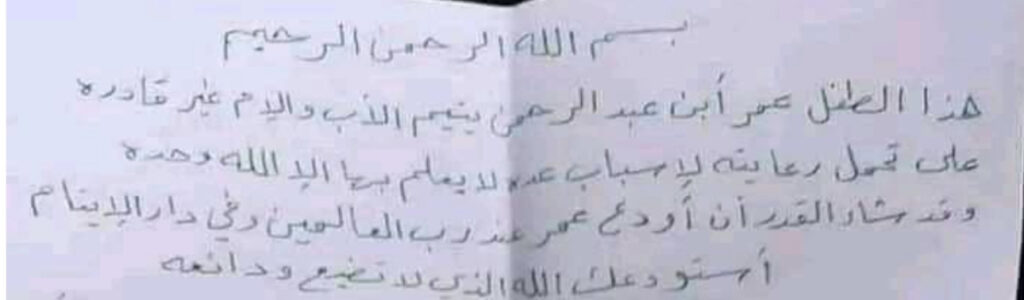 بسم الله الرحمن الرحيم
هذا الطفل عمر أبن عبد الرحمن يتيم الأب والإم غير قادره
على تحمل رعايته لإسباب عده لا يعلم بها الإ الله وحده
وقد شاء القدر أن أودع عمر عند رب العالمين وفي دار الإيتام
أستودعك الله الذي لا تضيع ودائعه